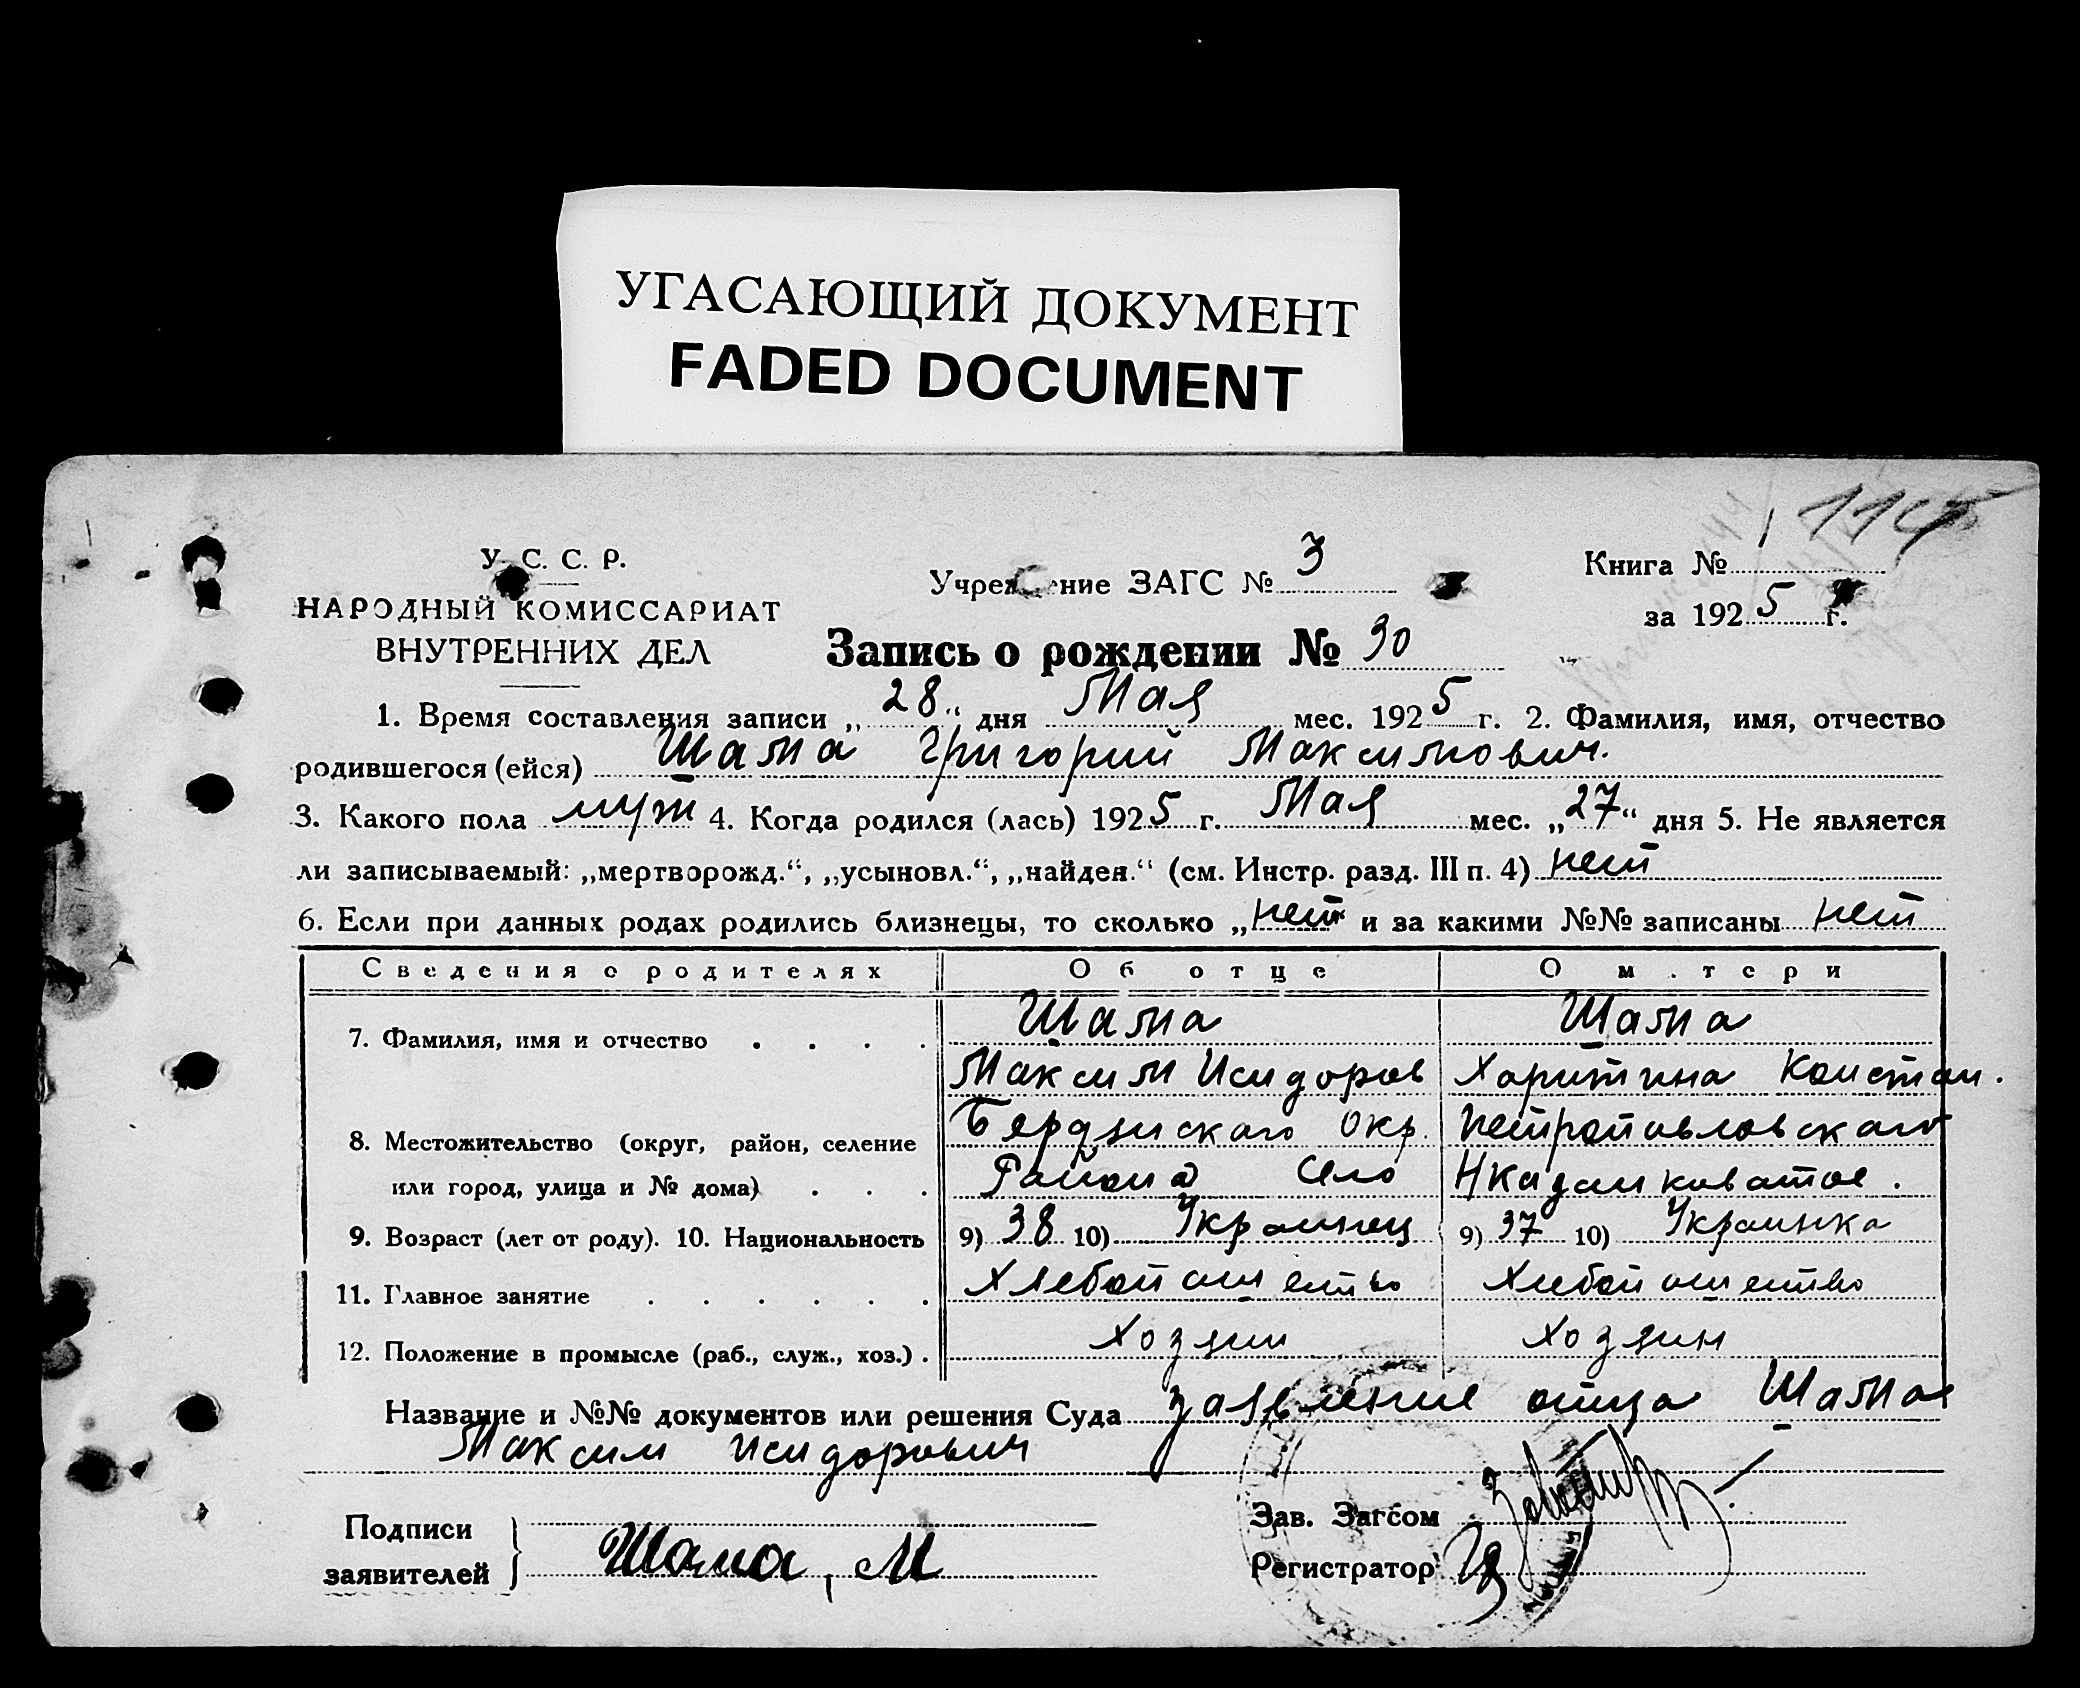 УГАСАЮЩИЙ ДОКУМЕНТ
FADED DOCUMENT
У. С. С. Р.
НАРОДНЫЙ КОМИССАРИАТ
ВНУТРЕННИХ ДЕЛ
Учреждение ЗАГС № 3
Книга №
за 1925 г.
Запись о рождении № 30
1. Время составления записи „28“ дня Мая мес. 1925 г. 2. Фамилия, имя, отчество
родившегося (ейся) Шама Григорий Максимович.
3. Какого пола муж 4. Когда родился (лась) 1925 г. Мая мес. „27“ дня 5. Не является
ли записываемый: „мертворожд.“, „усыновл.“, „найден.“ (см. Инстр. разд. III п. 4) нет
6. Если при данных родах родились близнецы, то сколько „нет“ и за какими №№ записаны нет
Сведения о родителях Об отце О м.тери
7. Фамилия, имя и отчество . . . . Шама Шама
Максим Исидоров Харитина Констан.
8. Местожительство (округ, район, селение Бердянского Окр. Петропавловского
или город, улица и № дома) . . . Района Село
9. Возраст (лет от роду). 10. Национальность 9) 38 10) Украинец 9) 37 10) Украинка
11. Главное занятие . . . . . . Хлебопашество Хлебопашество
12. Положение в промысле (раб., служ., хоз.) . Хозяин Хозяин
Название и №№ документов или решения Суда заявление отца Шама
Максим Исидорович
Подписи
заявителей
Шама, М
Зав. Загсом
Регистратор